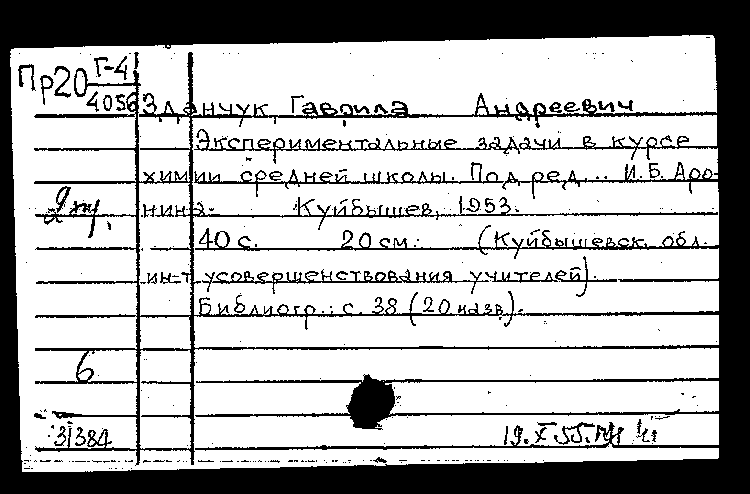 Пр20 Г-4
4056
Зданчук, Гаврила Андреевич
Экспериментальные задачи в курсе
химии средней школы. Под ред... И.Б. Аро-
нина. Куйбышев, 1953.
40 с. 20 см. (Куйбышевск. обл.
ин-т усовершенствования учителей).
Библиогр.: с. 38 (20 назв.).
6
31384
19.X.55.